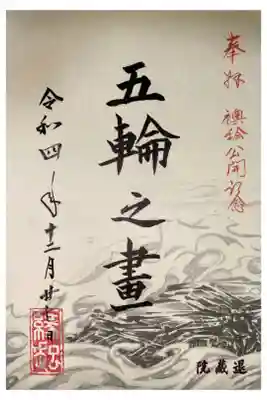 奉拝 襖絵公開記念
五輪之畫
令和四年十二月廿七日
退蔵院